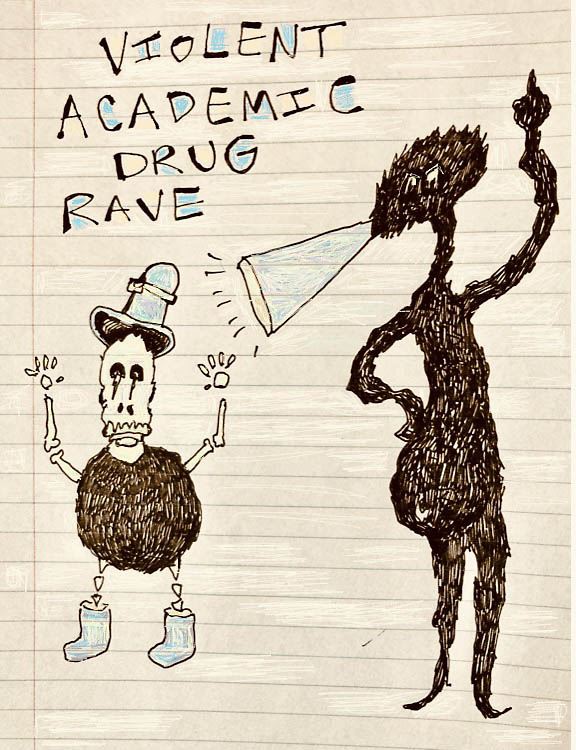 VIOLENT
ACADEMIC
DRUG
RAVE